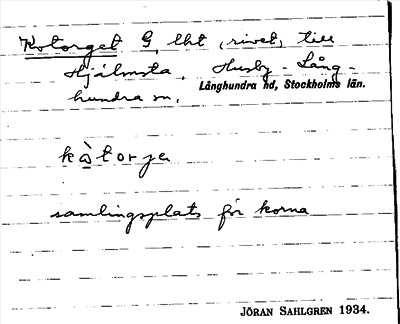 Kotorget G, lht (rivet) till
Hjälmsta, Husby-Lång-
hundra sn,
Långhundra hd, Stockholms län.
kòtorja
samlingsplats för korna
JÖRAN SAHLGREN 1934.